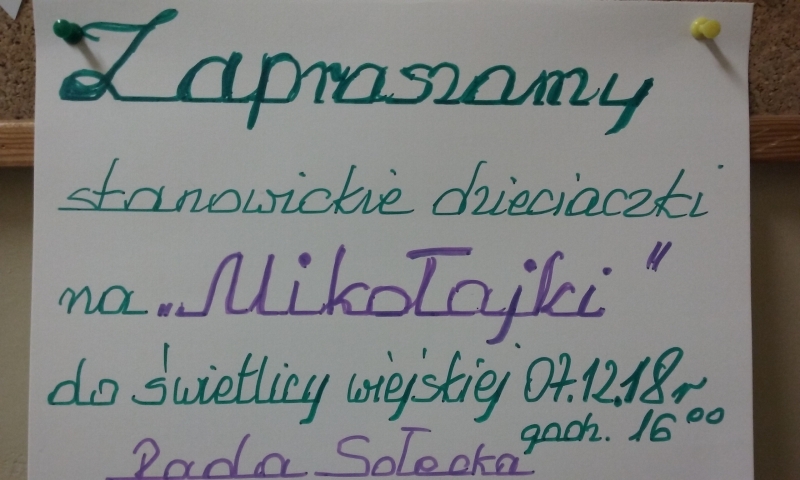 Zapraszamy
stanowickie dzieciaczki
na „Mikołajki”
do świetlicy wiejskiej 07.12.18r
godz. 16⁰⁰
Rada Sołecka